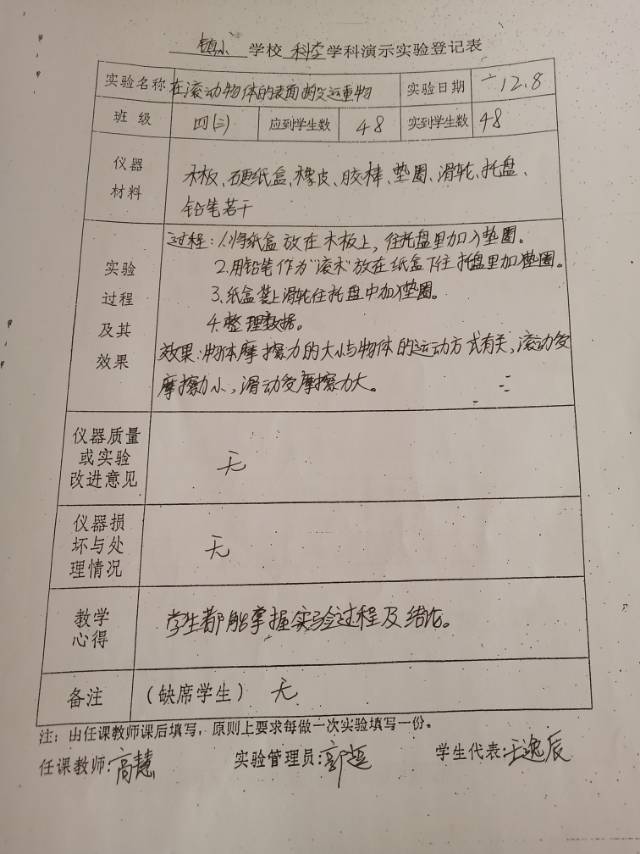 镇小 学校 科学 学科演示实验登记表
实验名称 在滚动物体的表面的交运重物 实验日期 12.8
班 级 四(三) 应到学生数 48 实到学生数 48
仪器材料
木板、硬纸盒、橡皮、胶棒、垫圈、滑轮、托盘、
铅笔若干
实验过程及其效果
过程:1.将纸盒放在木板上,往托盘里加入垫圈。
2.用铅笔作为“滚木”放在纸盒下往托盘里加垫圈。
3.纸盒装上滑轮往托盘中加入垫圈。
4.整理数据。
效果:物体摩擦力的大小与物体的运动方式有关,滚动受
摩擦力小,滑动受摩擦力大。
仪器质量或实验改进意见
无
仪器损坏与处理情况
无
教学心得
学生都能掌握实验过程及结论。
备注 (缺席学生) 无
注:由任课教师课后填写,原则上要求每做一次实验填写一份。
任课教师:高慧 实验管理员: 学生代表:王逸辰